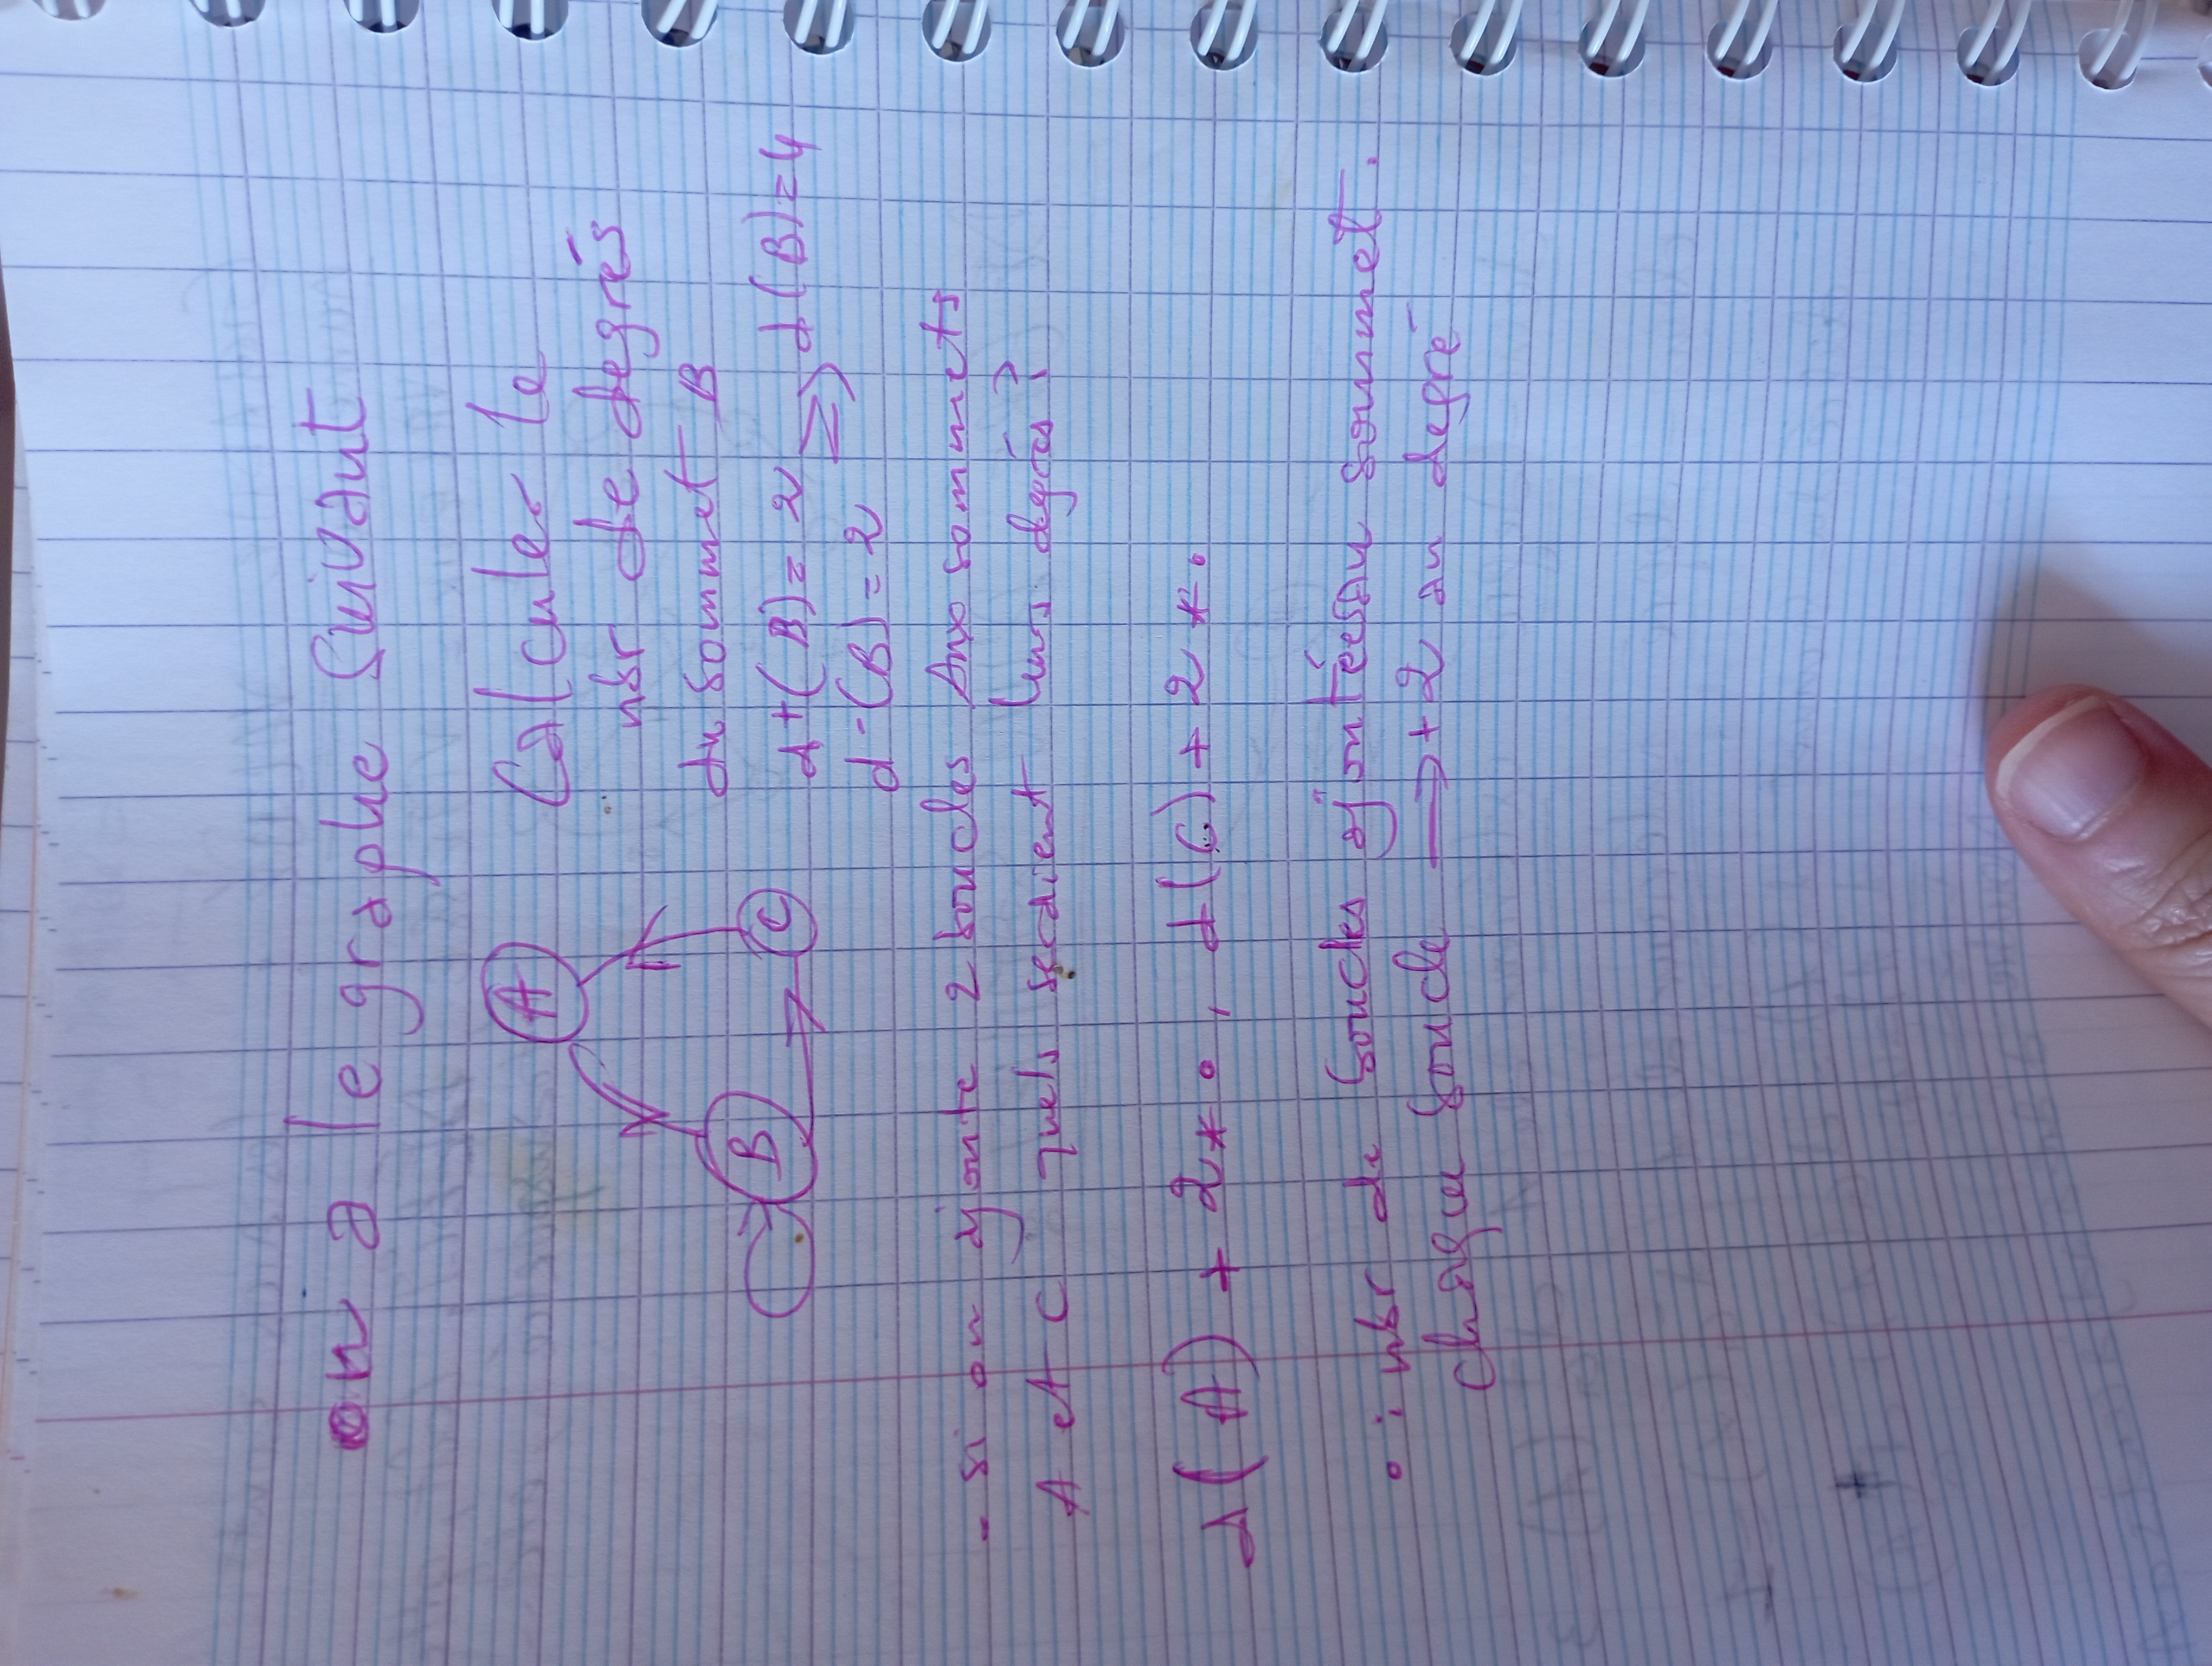 on a le graphe suivant
A
Calculer le
nbr de degrés
du sommet B
B
C
d+(B)= 2 => d(B)=4
d-(B)=2
- si on ajoute 2 boucles Aux sommets
A et C quels seraient leurs degrés?
d(A) + 2* ∘ , d(C) + 2 * ∘
∘ : nbr de boucles ajoutées au sommet.
chaque boucle → +2 au degré